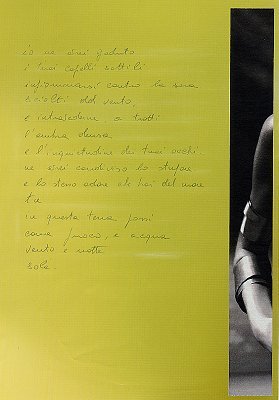 io ne sarei goduto
i tuoi capelli sottili
infiammarsi contro la sera
sciolti dal vento,
e intravedere a tratti
l'ombra densa
e l'inquietudine dei tuoi occhi.
ne sarei condiviso lo stupore
e lo stesso odore che hai del mare
tu
in questa terra possi
come fuoco, e acqua
vento e notte
sole